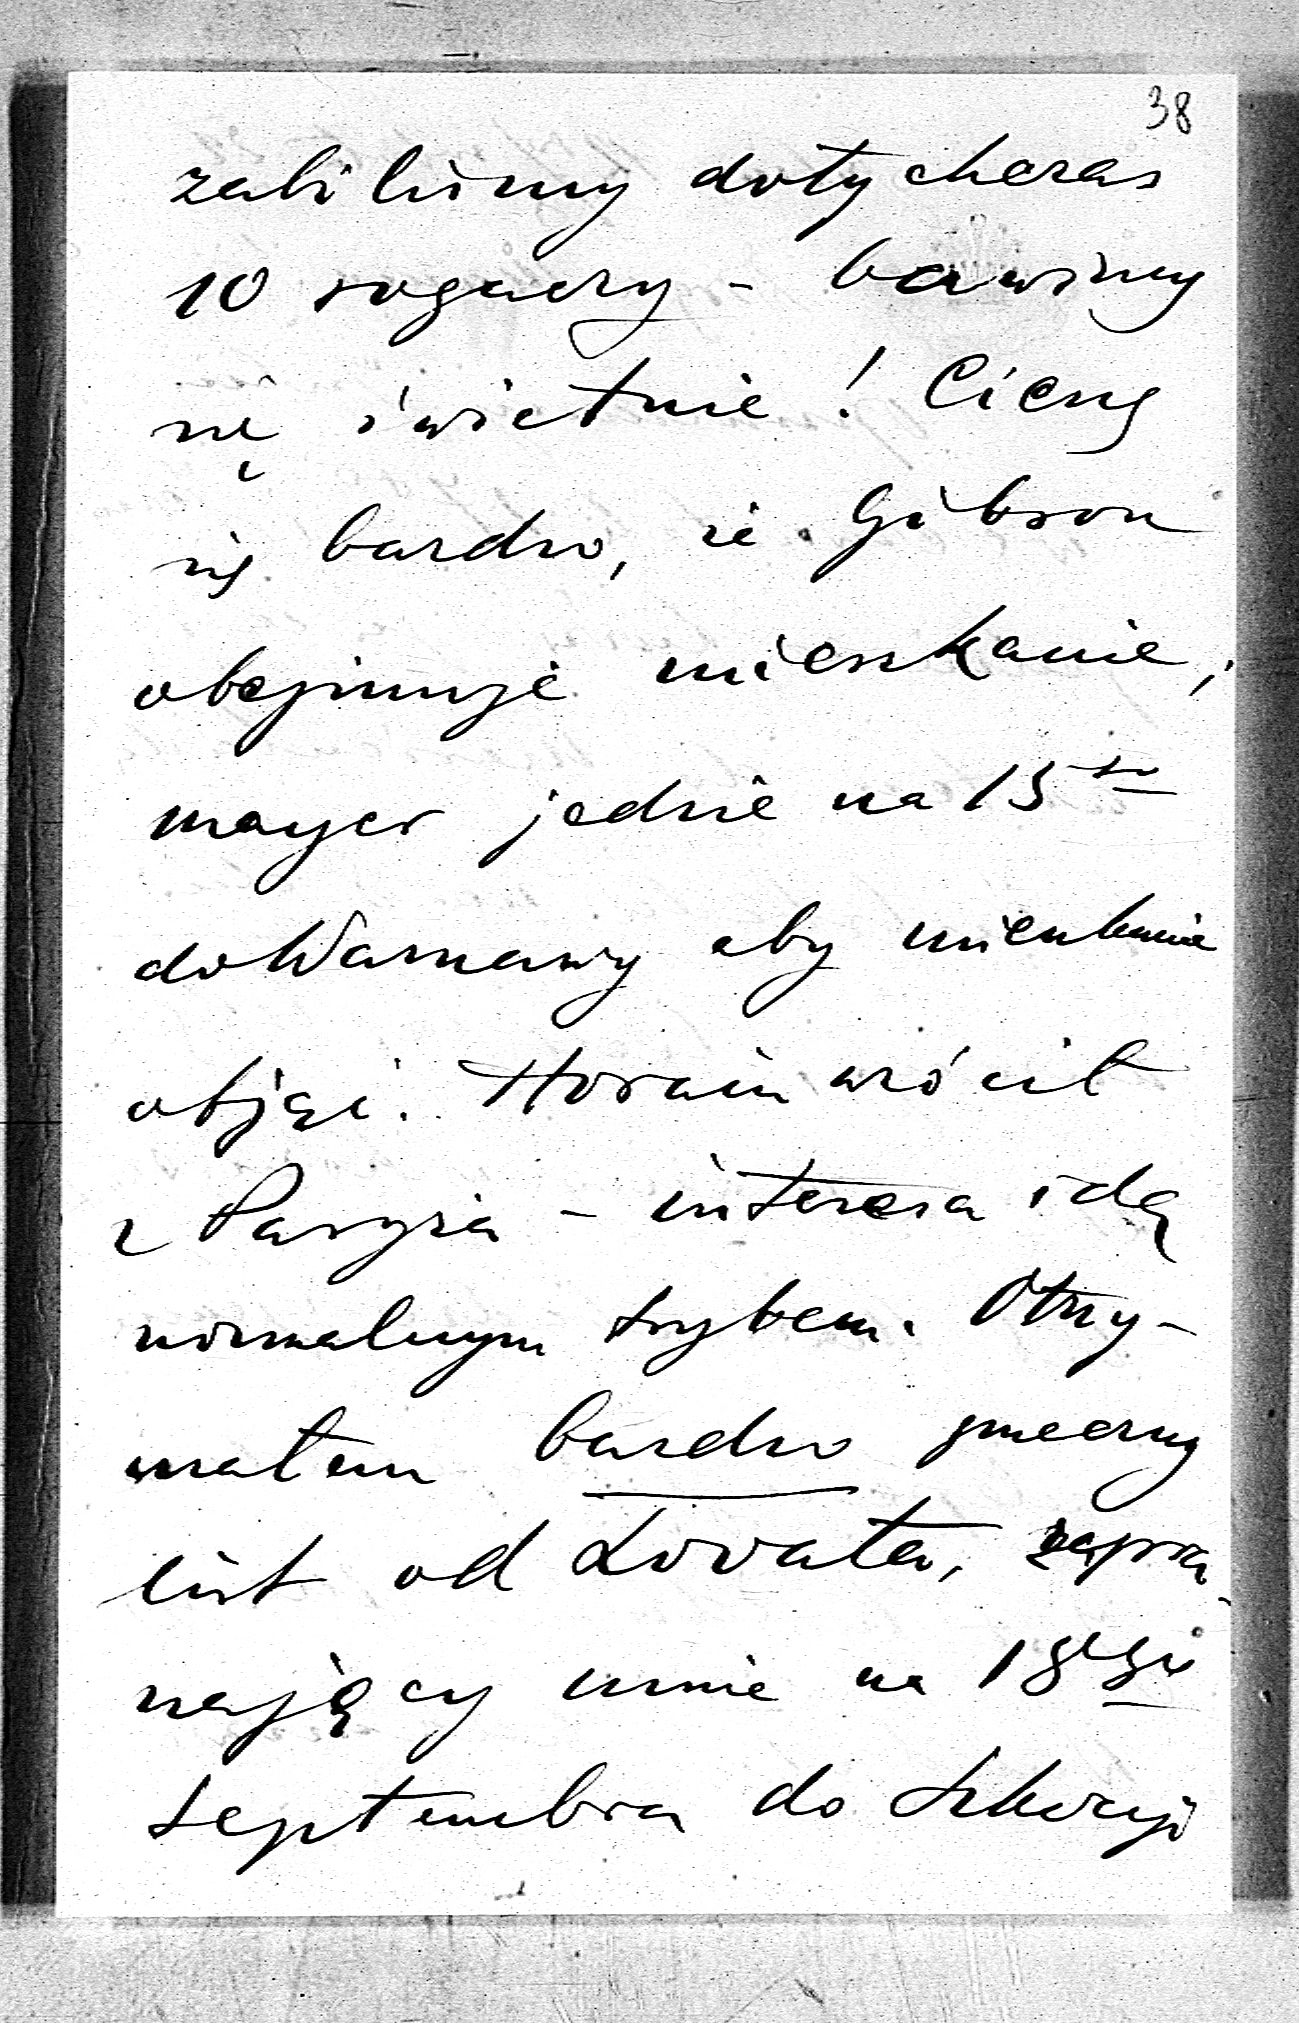 38
zabiliśmy dotychczas
10 rogaczy – bawimy
się świetnie! Cieszę
się bardzo, że Gibson
obejmuje mieszkanie,
mayer jedzie na 15go
do Warszawy aby mieszkanie
objąć. Horain wrócił
z Paryża – interesa idą
normalnym trybem. Otrzy-
małem bardzo grzeczny
list od Lovata, zapra-
szający mnie na 18ego
Septembra do Szkocyi